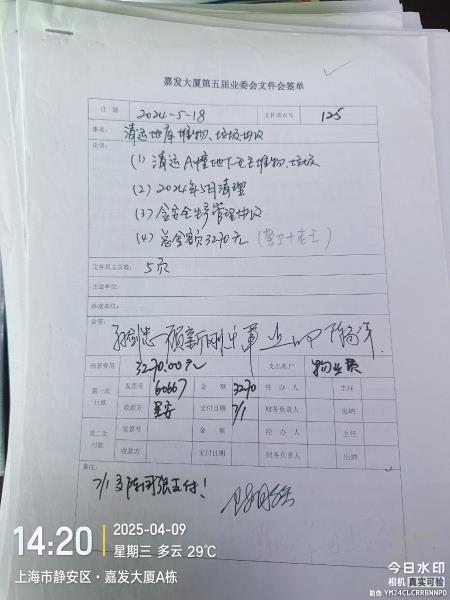 嘉发大厦第五届业委会文件会签单
日期 2024-5-18 文件流水号 125
事项: 清运地库堆物、垃圾协议
说明:
(1) 清运A幢地下室堆物、垃圾
(2) 2024年5月清理
(3) 含安全生产管理协议
(4) 总金额3270元
文件原文页数: 5页
主送单位:
抄送单位:
会签:
预算费用 3270.00元 支出账户 物业费
第一次付款 发票号 60667 金额 3270 经办人 主任
收款方 支付日期 7/1 财务负责人 出纳
第二次付款 发票号 金额 经办人 主任
收款方 支付日期 财务负责人 出纳
备注:
14:20 2025-04-09
星期三 多云 29℃
上海市静安区·嘉发大厦A栋
今日水印
相机 真实可验
防伪 YM24CLCRRBNNPD